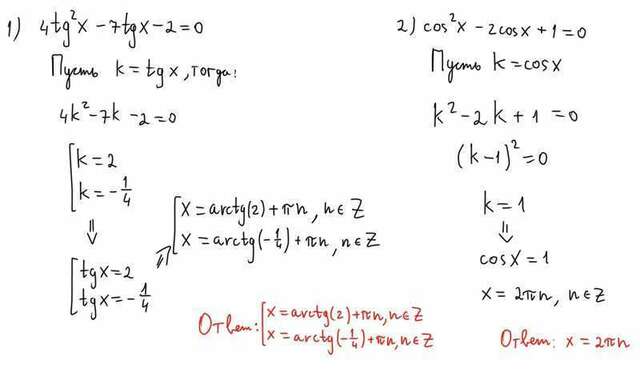 1) 4tg²x - 7tgx - 2 = 0
Пусть k = tgx, тогда:
4k² - 7k - 2 = 0
[k = 2
k = -1/4
⇓
[tgx = 2
tgx = -1/4
⇒ [x = arctg(2) + πn, n ∈ Z
x = arctg(-1/4) + πn, n ∈ Z
Ответ: [x = arctg(2) + πn, n ∈ Z
x = arctg(-1/4) + πn, n ∈ Z
2) cos²x - 2cosx + 1 = 0
Пусть k = cosx
k² - 2k + 1 = 0
(k - 1)² = 0
k = 1
⇓
cosx = 1
x = 2πn, n ∈ Z
Ответ: x = 2πn